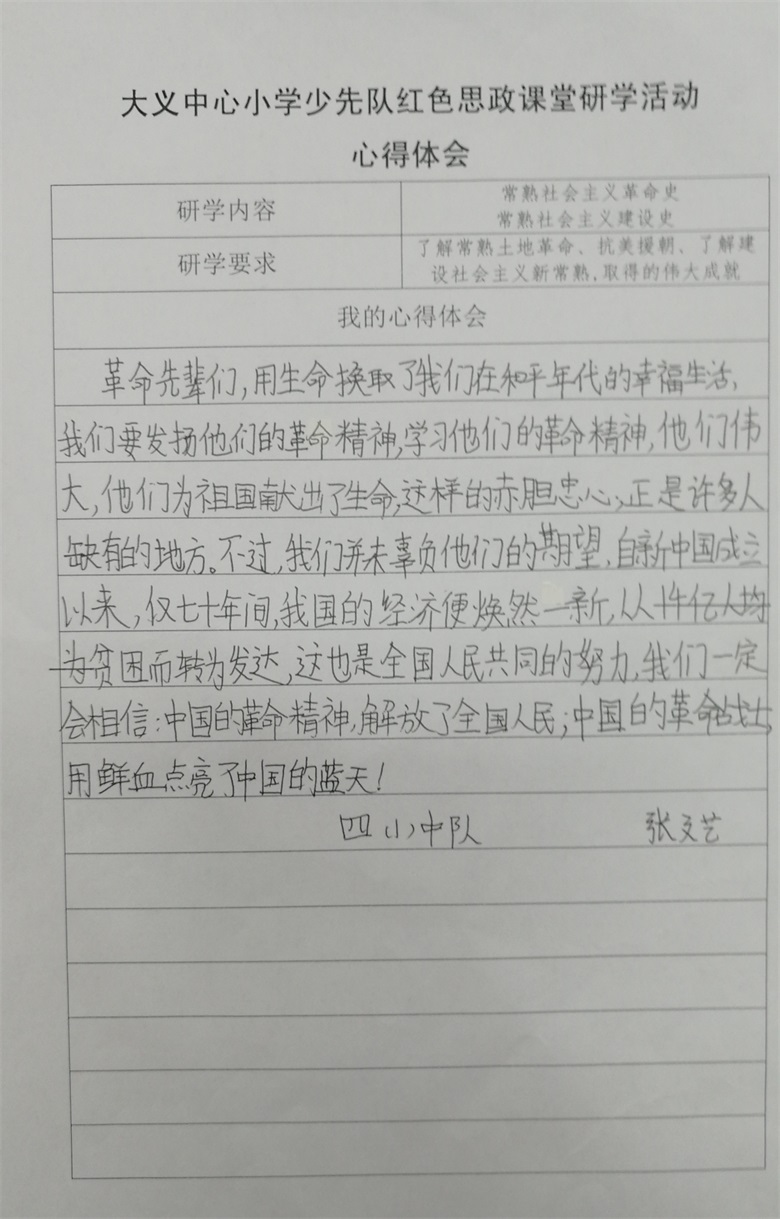 大义中心小学少先队红色思政课堂研学活动
心得体会
研学内容
常熟社会主义革命史
常熟社会主义建设史
研学要求
了解常熟土地革命、抗美援朝、了解建
设社会主义新常熟,取得的伟大成就
我的心得体会
革命先辈们,用生命换取了我们在和平年代的幸福生活,
我们要发扬他们的革命精神,学习他们的革命精神,他们伟
大,他们为祖国献出了生命,这样的赤胆忠心,正是许多人
缺有的地方。不过,我们并未辜负他们的期望,自新中国成立
以来,仅七十年间,我国的经济便焕然一新,从十四亿人均
为贫困而转为发达,这也是全国人民共同的努力,我们一定
会相信:中国的革命精神,解放了全国人民;中国的革命战士,
用鲜血点亮了中国的蓝天!
四(1)中队 张文艺